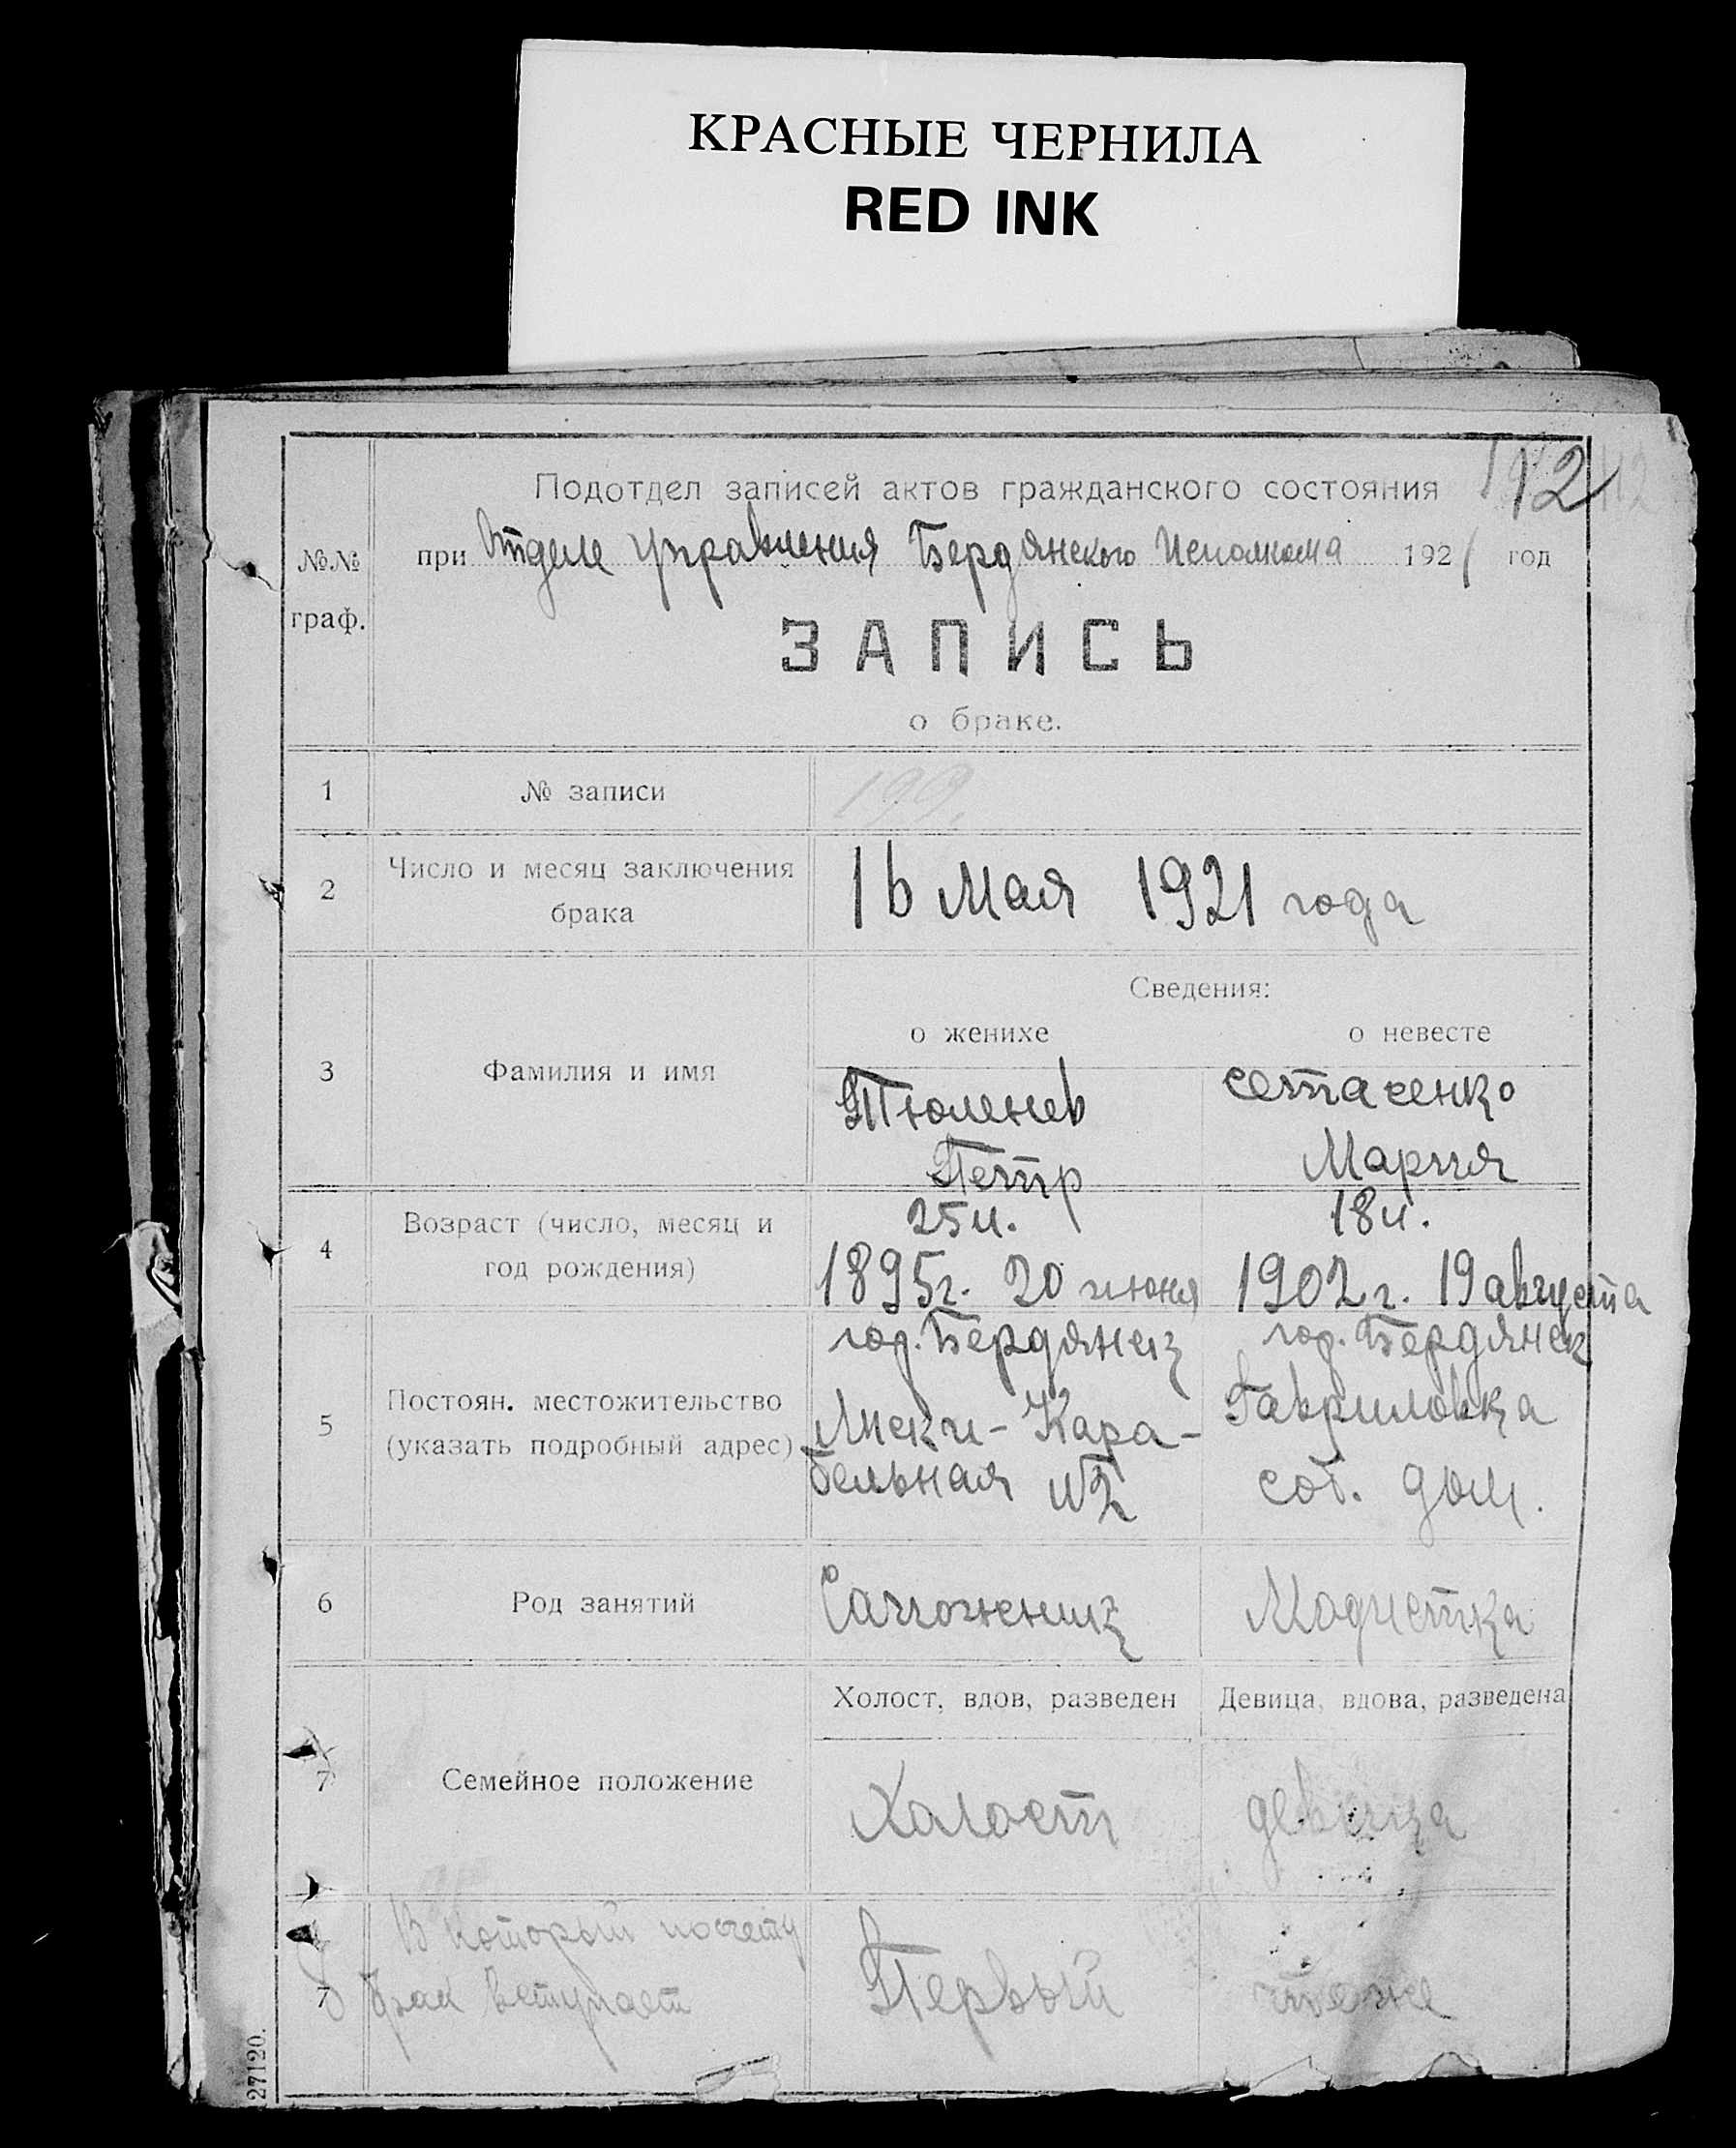 КРАСНЫЕ ЧЕРНИЛА
RED INK
12
Подотдел записей актов гражданского состояния
№№ граф.
при Отделе Управления Бердянского Исполкома 1921 год
ЗАПИСЬ
о браке.
1 № записи 199.
2 Число и месяц заключения брака
16 Мая 1921 года
Сведения:
о женихе о невесте
3 Фамилия и имя
Тюленев
Петр
Сетаченко
Мария
4 Возраст (число, месяц и
год рождения)
25 л.
1895г. 20 июня
18 л.
1902 г. 19 августа
5 Постоян. местожительство
(указать подробный адрес)
гор. Бердянск
Лиски-Кара-
бельная №2
гор. Бердянск
Гавриловка
соб. дом.
6 Род занятий
Сапожник
Модистка
Холост, вдов, разведен Девица, вдова, разведена
7 Семейное положение
Халост
девица
7 В который по счету
брак вступает
Первый
тоже
27120.